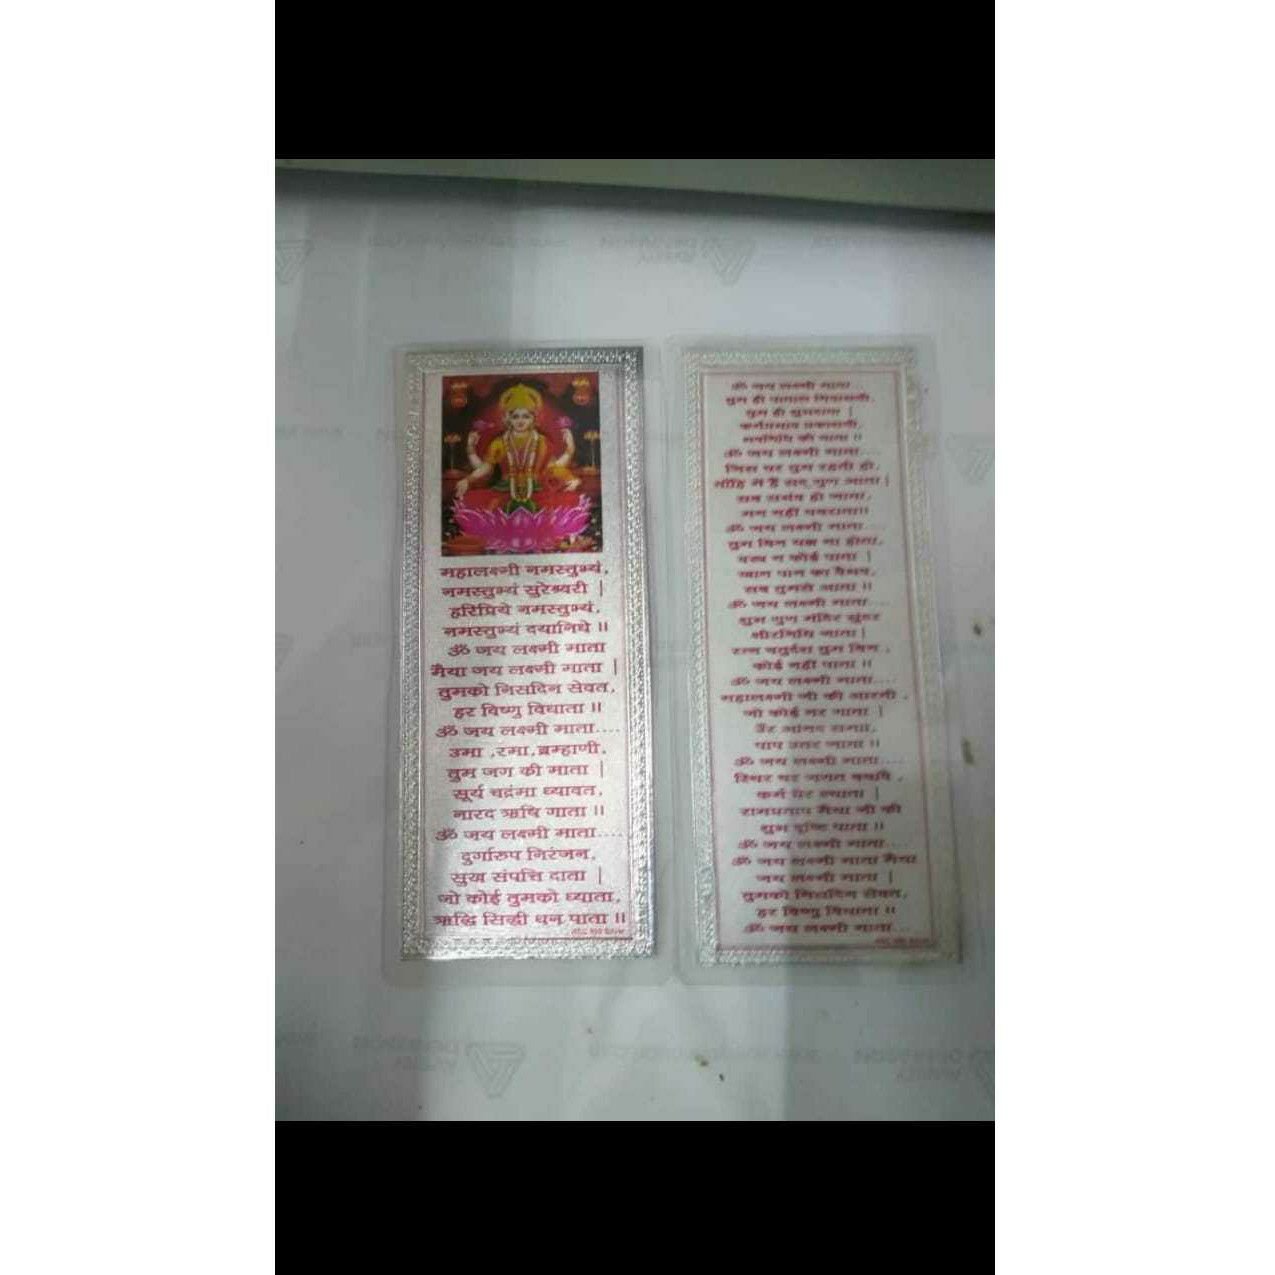 महालक्ष्मी नमस्तुभ्यं,
नमस्तुभ्यं सुरेश्वरी |
हरिप्रिये नमस्तुभ्यं,
नमस्तुभ्यं दयानिधे ||
ॐ जय लक्ष्मी माता
मैया जय लक्ष्मी माता |
तुमको निसदिन सेवत,
हर विष्णु विधाता ||
ॐ जय लक्ष्मी माता....
उमा ,रमा,ब्रम्हाणी,
तुम जग की माता |
सूर्य चद्रंमा ध्यावत,
नारद ऋषि गाता ||
ॐ जय लक्ष्मी माता....
दुर्गारुप निरंजन,
सुख संपत्ति दाता |
जो कोई तुमको ध्याता,
ऋद्धि सिद्धी धन पाता ||
ॐ जय लक्ष्मी माता...
तुम ही पाताल निवासनी,
तुम ही शुभदाता |
कर्मप्रभाव प्रकाशनी,
भवनिधि की माता ||
ॐ जय लक्ष्मी माता....
जिस घर तुम रहती हो,
ताँहि में हैं सद् गुण आता |
सब संभव हो जाता,
मन नहीं घबराता||
ॐ जय लक्ष्मी माता....
तुम बिन यज्ञ ना होता,
वस्त्र न कोई पाता |
खान पान का वैभव,
सब तुमसे आता ||
ॐ जय लक्ष्मी माता....
शुभ गुण मंदिर सुंदर
क्षीरनिधि जाता |
रत्न चतुर्दश तुम बिन ,
कोई नहीं पाता ||
ॐ जय लक्ष्मी माता....
महालक्ष्मी जी की आरती ,
जो कोई नर गाता |
उँर आंनद समाा,
पाप उतर जाता ||
ॐ जय लक्ष्मी माता....
स्थिर चर जगत बचावे ,
कर्म प्रेर ल्याता |
रामप्रताप मैया जी की
शुभ दृष्टि पाता ||
ॐ जय लक्ष्मी माता....
ॐ जय लक्ष्मी माता मैया
जय लक्ष्मी माता |
तुमको निसदिन सेवत,
हर विष्णु विधाता ||
ॐ जय लक्ष्मी माता...